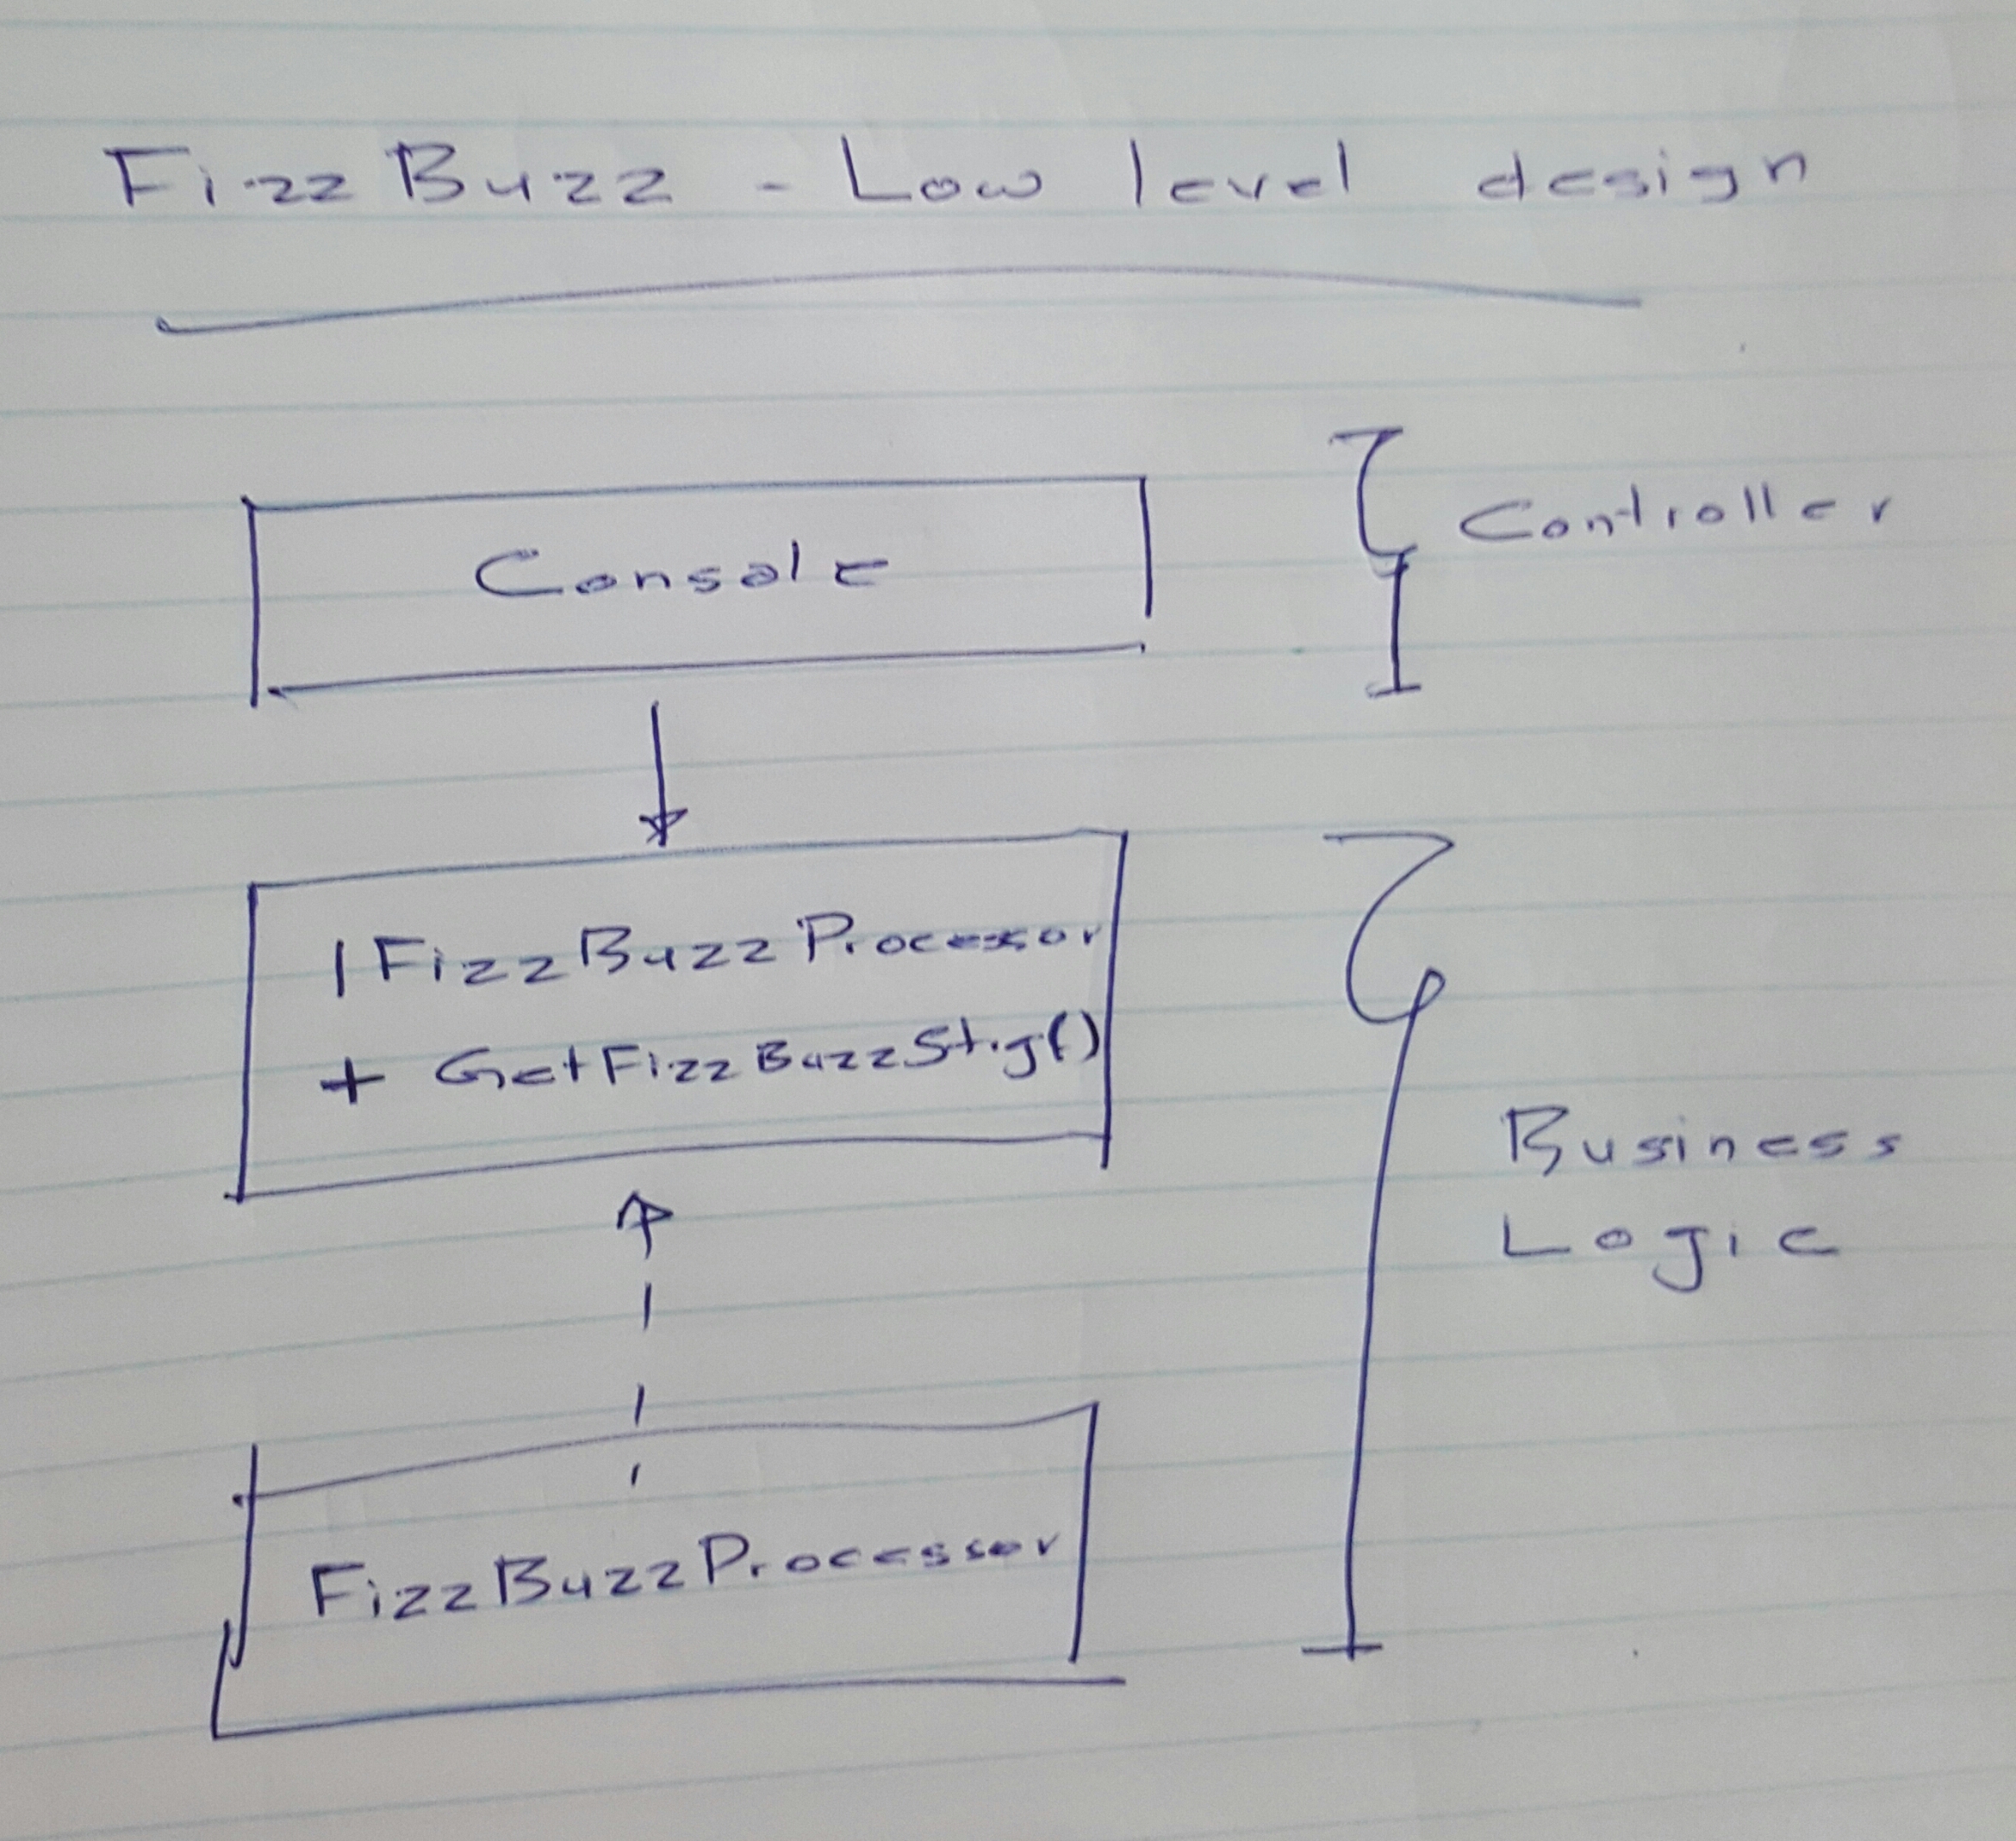 FizzBuzz - Low level design
Console
Controller
IFizzBuzzProcessor
+ GetFizzBuzzStig()
Business
Logic
FizzBuzzProcessor